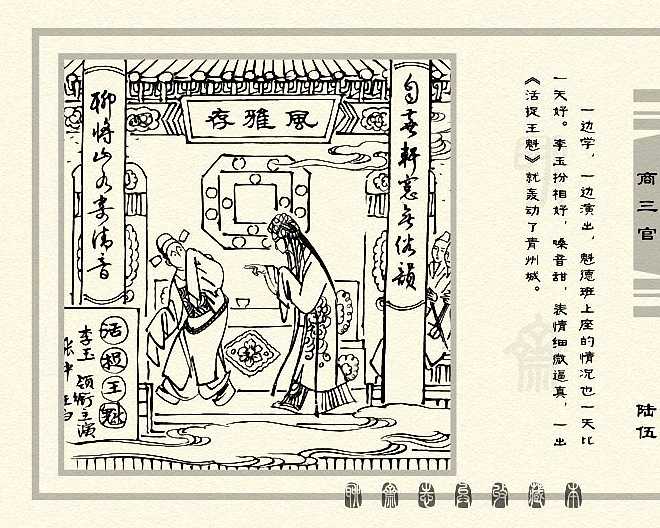 一边学，一边演出，魁德班上座的情况也一天比
一天好。李玉扮相好，嗓音甜，表情细微逼真，一出
《活捉王魁》就轰动了青州城。
商三官
陆伍
風雅存
轩窓
俗韻
聊将山水寄清音
活捉王魁
李玉 领衔主演